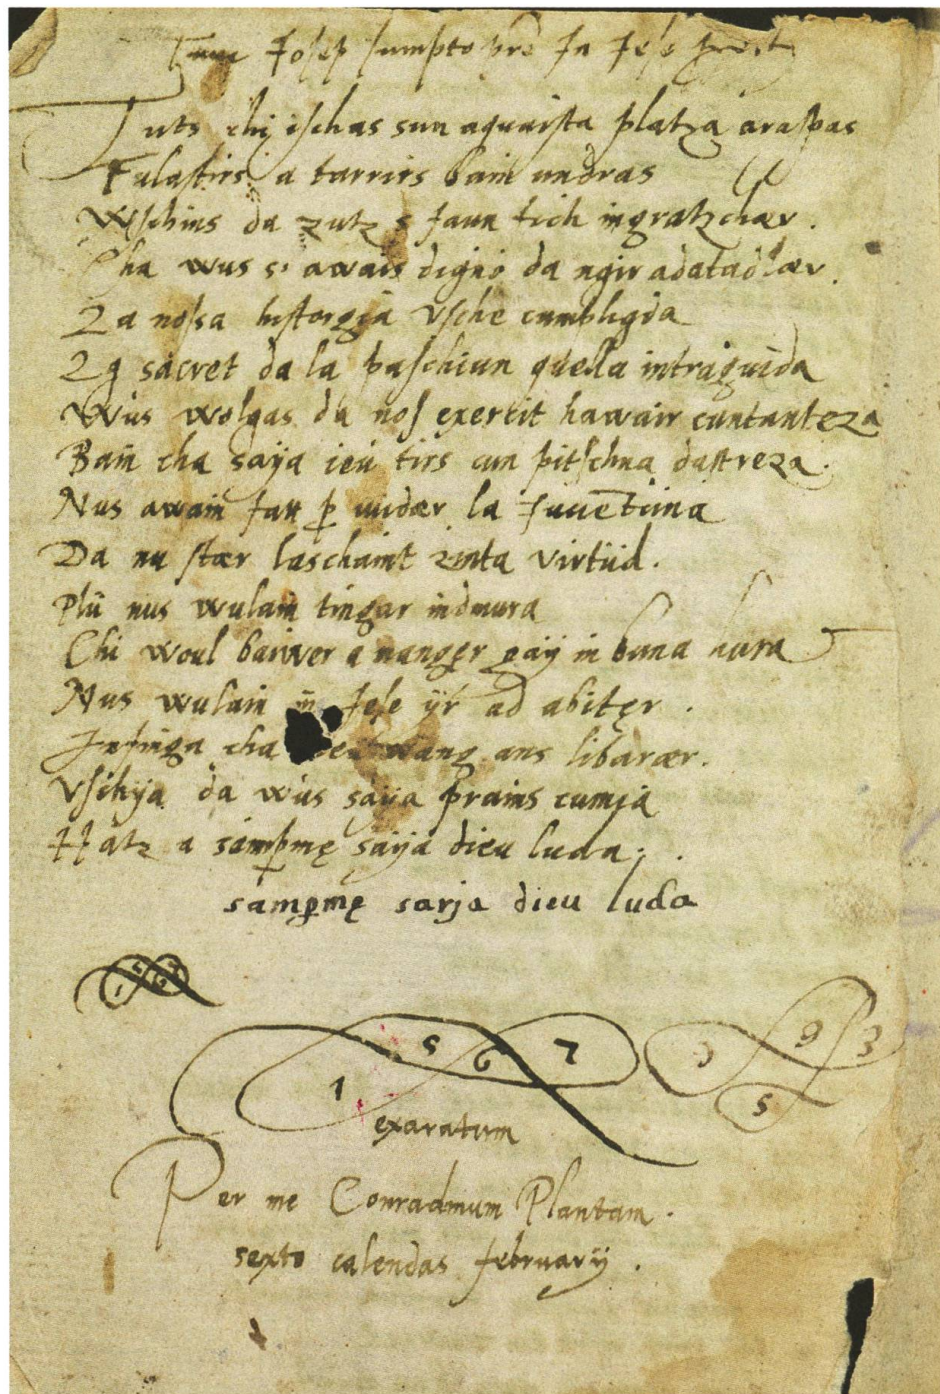 Tunc Josep sumpto pre In Jese
Tuts chi ischas sun aquaista platza araspas
Fulastirs a tarrirs bain undras
Wschins da zutz s faun tich ingratzchær.
Cha wus s' awais digno da ngir adatadlær.
La nossa histoergia vsche cumpligda
Lg sacret da la paschiun quella intraguida
Wus wolgas da nos exercit hawair cuntanteza
Bain cha saya ieu tirs cun pitschna dastreza.
Nus awain fatt p uüdær la Juuētüna
Da nu stær laschaint zinta virtüd.
Plü nus wulain tingar indmura
Chi woul baiwer a nanger gaÿ in buna hura
Nus wulain in Jese ÿr ad abiter.
Infinga cha wang ans libarær.
Vschÿa da wus saÿa prains cumja
Hatz a simpmę saÿa dieu luda;.
sampmę sarja dieu luda
1567
1 5 6 7
9 3 5
exaratum
Per me Conradinum Plantam.
sexto calendas februarÿ.